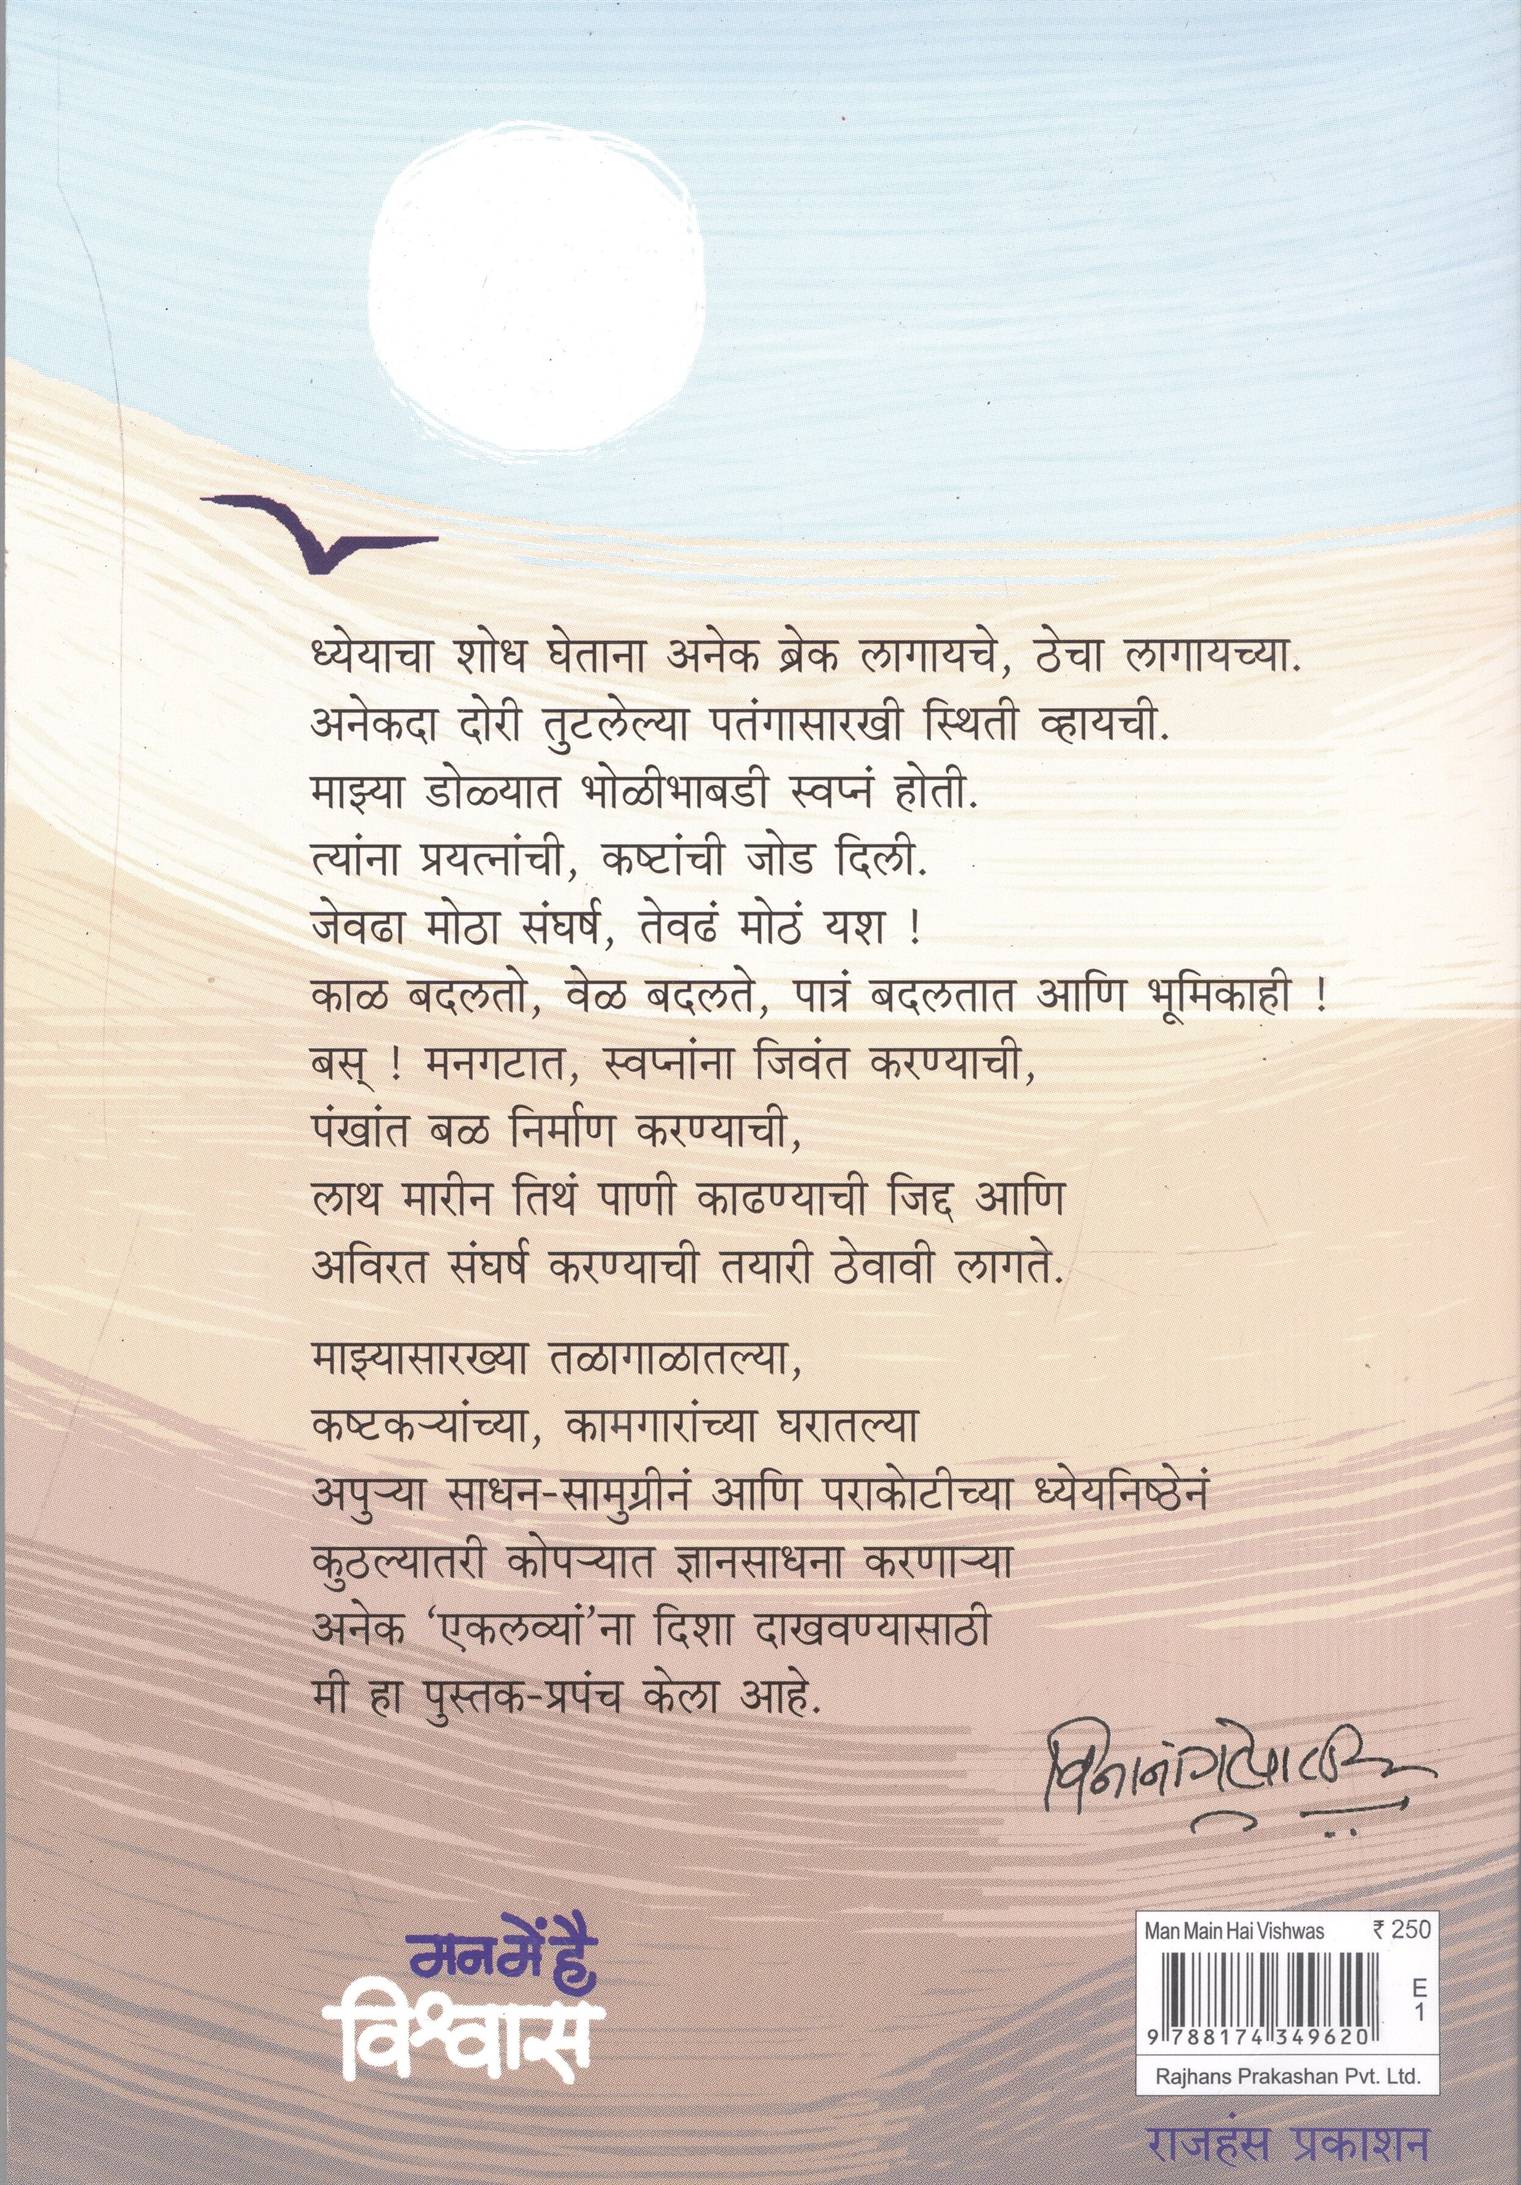 ध्येयाचा शोध घेताना अनेक ब्रेक लागायचे, ठेचा लागायच्या.
अनेकदा दोरी तुटलेल्या पतंगासारखी स्थिती व्हायची.
माझ्या डोळ्यात भोळीभाबडी स्वप्नं होती.
त्यांना प्रयत्नांची, कष्टांची जोड दिली.
जेवढा मोठा संघर्ष, तेवढं मोठं यश !
काळ बदलतो, वेळ बदलते, पात्रं बदलतात आणि भूमिकाही !
बस् ! मनगटात, स्वप्नांना जिवंत करण्याची,
पंखांत बळ निर्माण करण्याची,
लाथ मारीन तिथं पाणी काढण्याची जिद्द आणि
अविरत संघर्ष करण्याची तयारी ठेवावी लागते.
माझ्यासारख्या तळागाळातल्या,
कष्टकऱ्यांच्या, कामगारांच्या घरातल्या
अपुऱ्या साधन-सामुग्रीनं आणि पराकोटीच्या ध्येयनिष्ठेनं
कुठल्यातरी कोपऱ्यात ज्ञानसाधना करणाऱ्या
अनेक ‘एकलव्यां’ना दिशा दाखवण्यासाठी
मी हा पुस्तक-प्रपंच केला आहे.
मन में है
विश्वास
Man Main Hai Vishwas ₹ 250
E
1
9 788174 349620
Rajhans Prakashan Pvt. Ltd.
राजहंस प्रकाशन